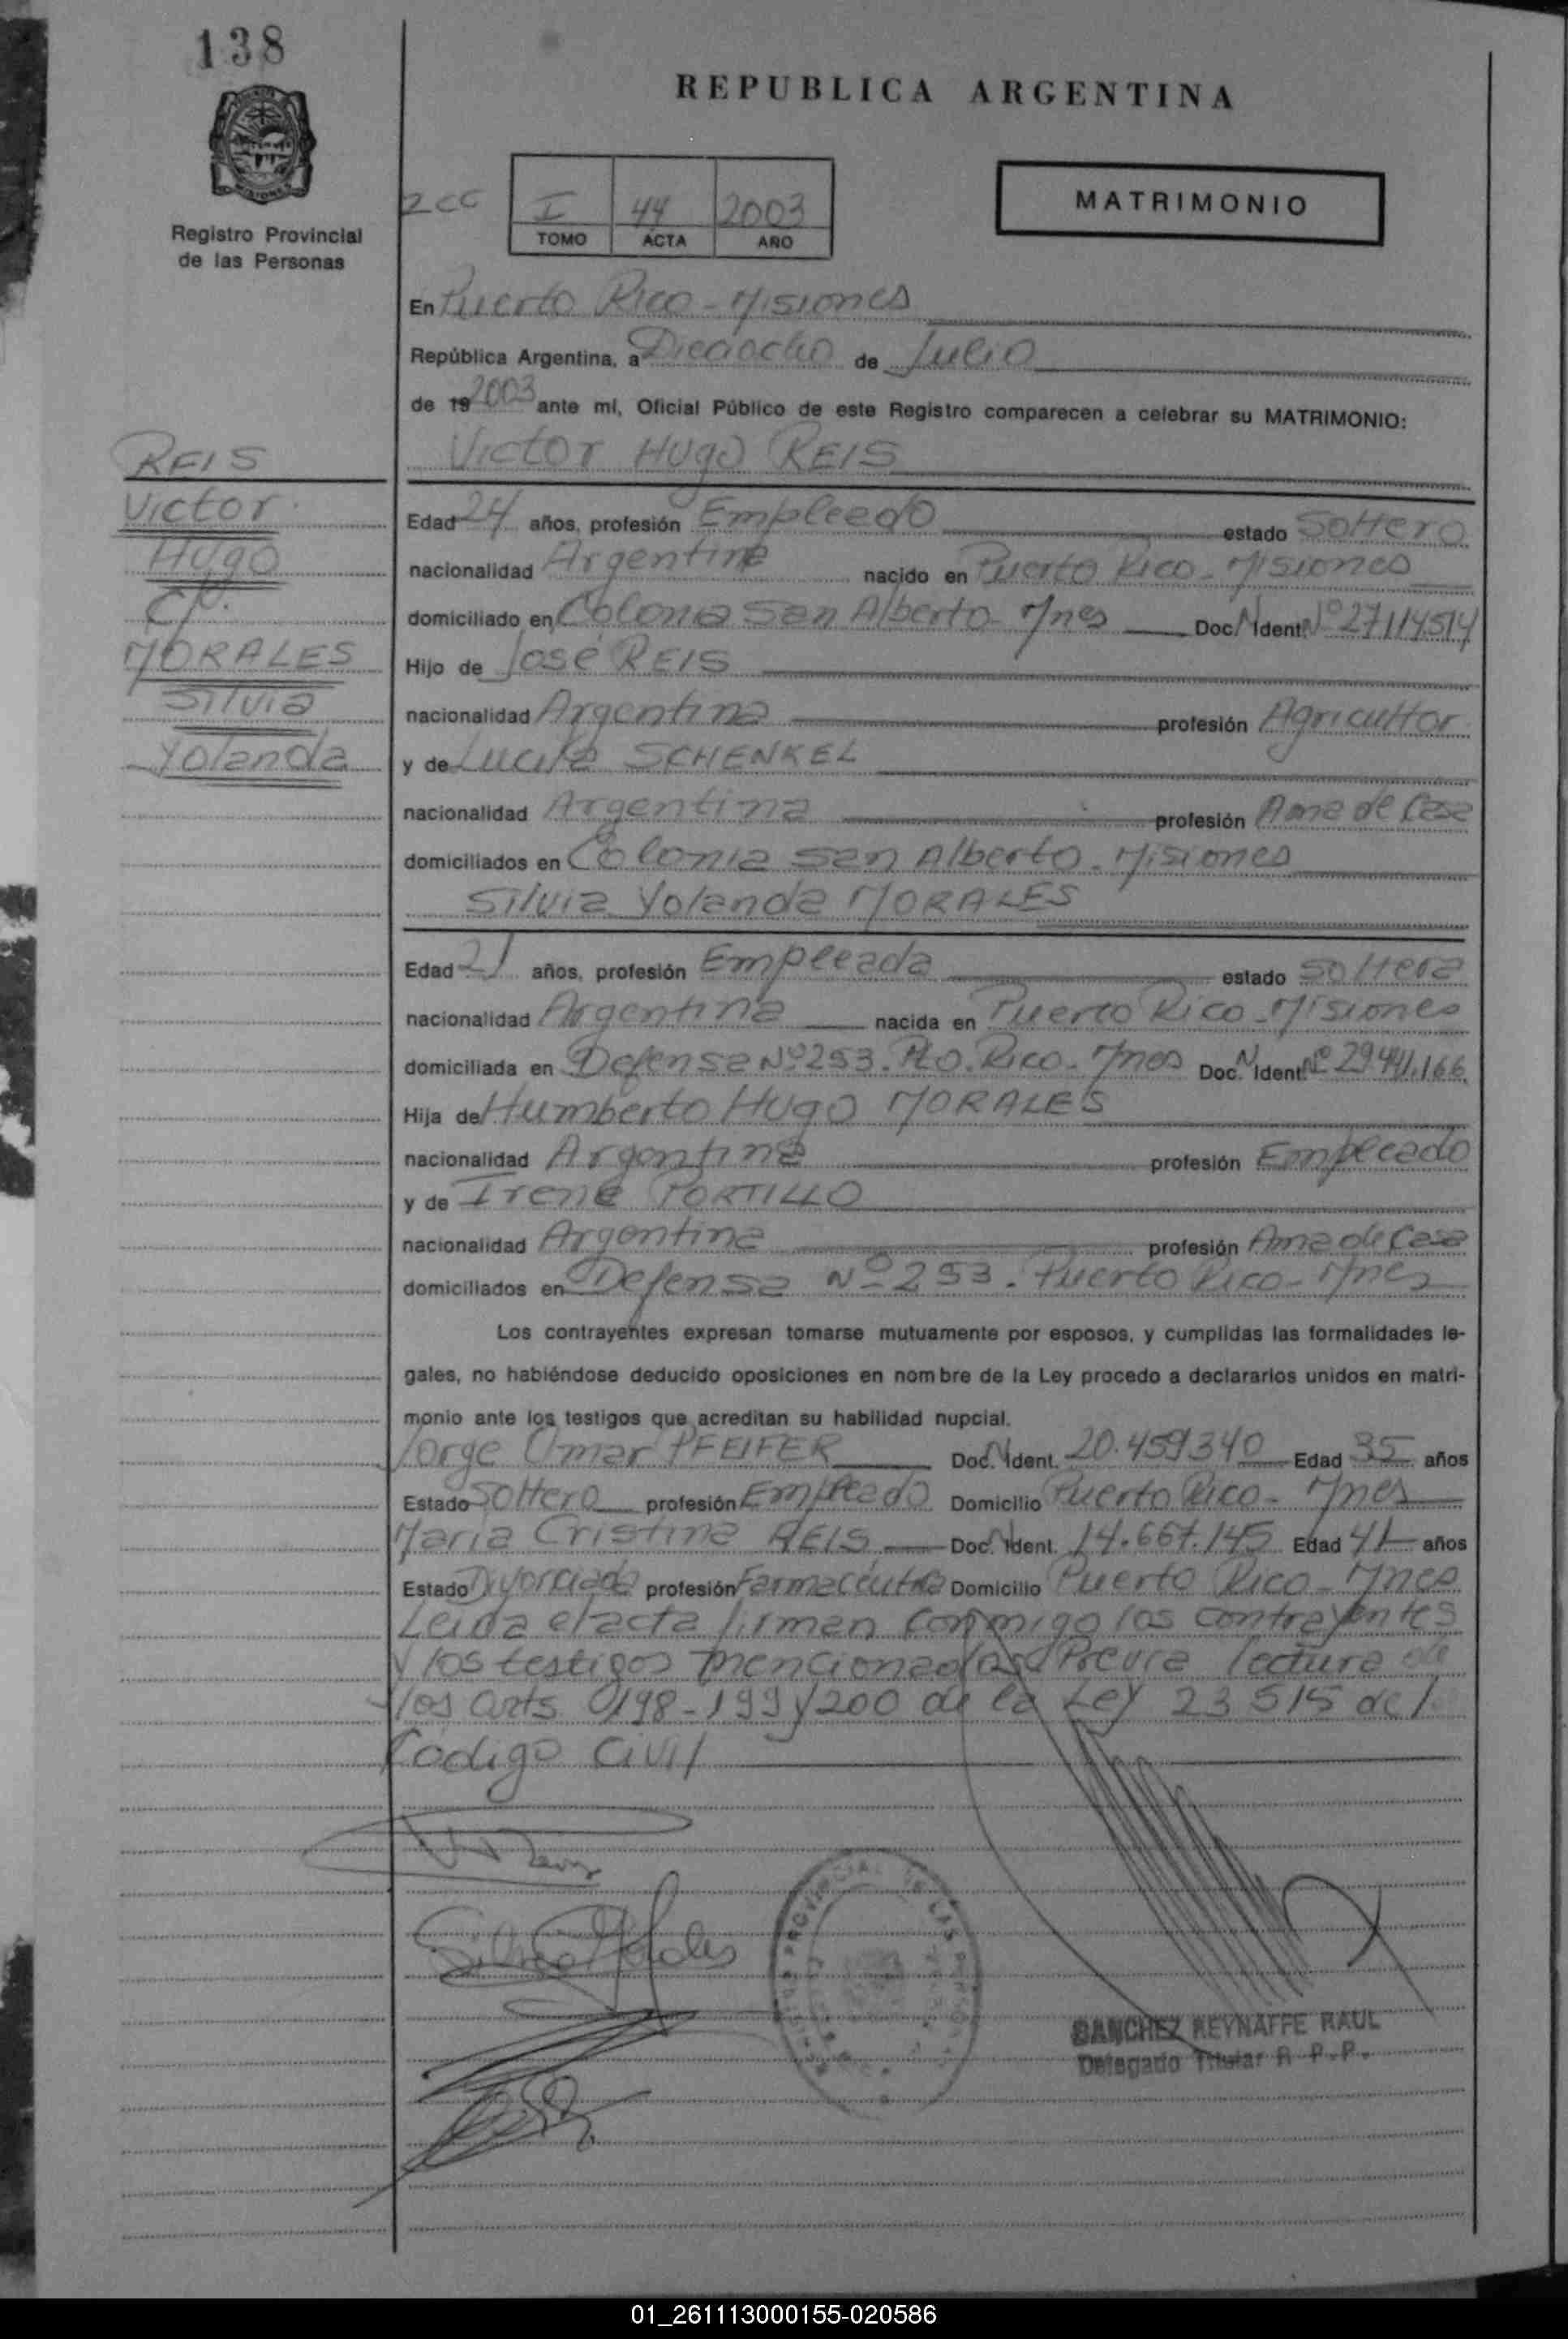 138
REPUBLICA ARGENTINA
MATRIMONIO
2CC
I 44 2003
TOMO ACTA AÑO
Registro Provincial
de las Personas
En Puerto Rico - Misiones
República Argentina, a Dieciocho de Julio
de 19 2003 ante mí, Oficial Público de este Registro comparecen a celebrar su MATRIMONIO:
REIS
Victor
Hugo
c/
MORALES
Silvia
Yolanda
Victor Hugo REIS
Edad 24 años, profesión Empleado estado Soltero
nacionalidad Argentina nacido en Puerto Rico - Misiones
domiciliado en Colonia San Alberto - Mnes Doc. N. Ident. Nº 27114514
Hijo de José REIS
nacionalidad Argentina profesión Agricultor
y de SCHENKEL
nacionalidad Argentina profesión Ama de Casa
domiciliados en Colonia San Alberto - Misiones
Silvia Yolanda MORALES
Edad 21 años, profesión Empleada estado soltera
nacionalidad Argentina nacida en Puerto Rico - Misiones
domiciliada en Defensa Nº 253. Pto. Rico - Mnes Doc. N. Ident. Nº 29.441.166
Hija de Humberto Hugo MORALES
nacionalidad Argentina profesión Empleado
y de Irene PORTILLO
nacionalidad Argentina profesión Ama de Casa
domiciliados en Defensa Nº 253. Puerto Rico - Mnes
Los contrayentes expresan tomarse mutuamente por esposos, y cumplidas las formalidades le-
gales, no habiéndose deducido oposiciones en nombre de la Ley procedo a declararlos unidos en matri-
monio ante los testigos que acreditan su habilidad nupcial.
Jorge Omar PFEIFER Doc. N. Ident. 20.459340 Edad 35 años
Estado Soltero profesión Empleado Domicilio Puerto Rico - Mnes
Maria Cristina REIS Doc. N. Ident. 14.667.145 Edad 41 años
Estado Divorciada profesión Farmacéutica Domicilio Puerto Rico - Mnes
Leida el acta firman conmigo los contrayentes
y los testigos mencionados Previa lectura de
los arts 198-199 y 200 de la Ley 23515 del
Código Civil
Silvia Morales
SANCHEZ REYNAFFE RAUL
Delegado Titular R.P.P.
01_261113000155-020586